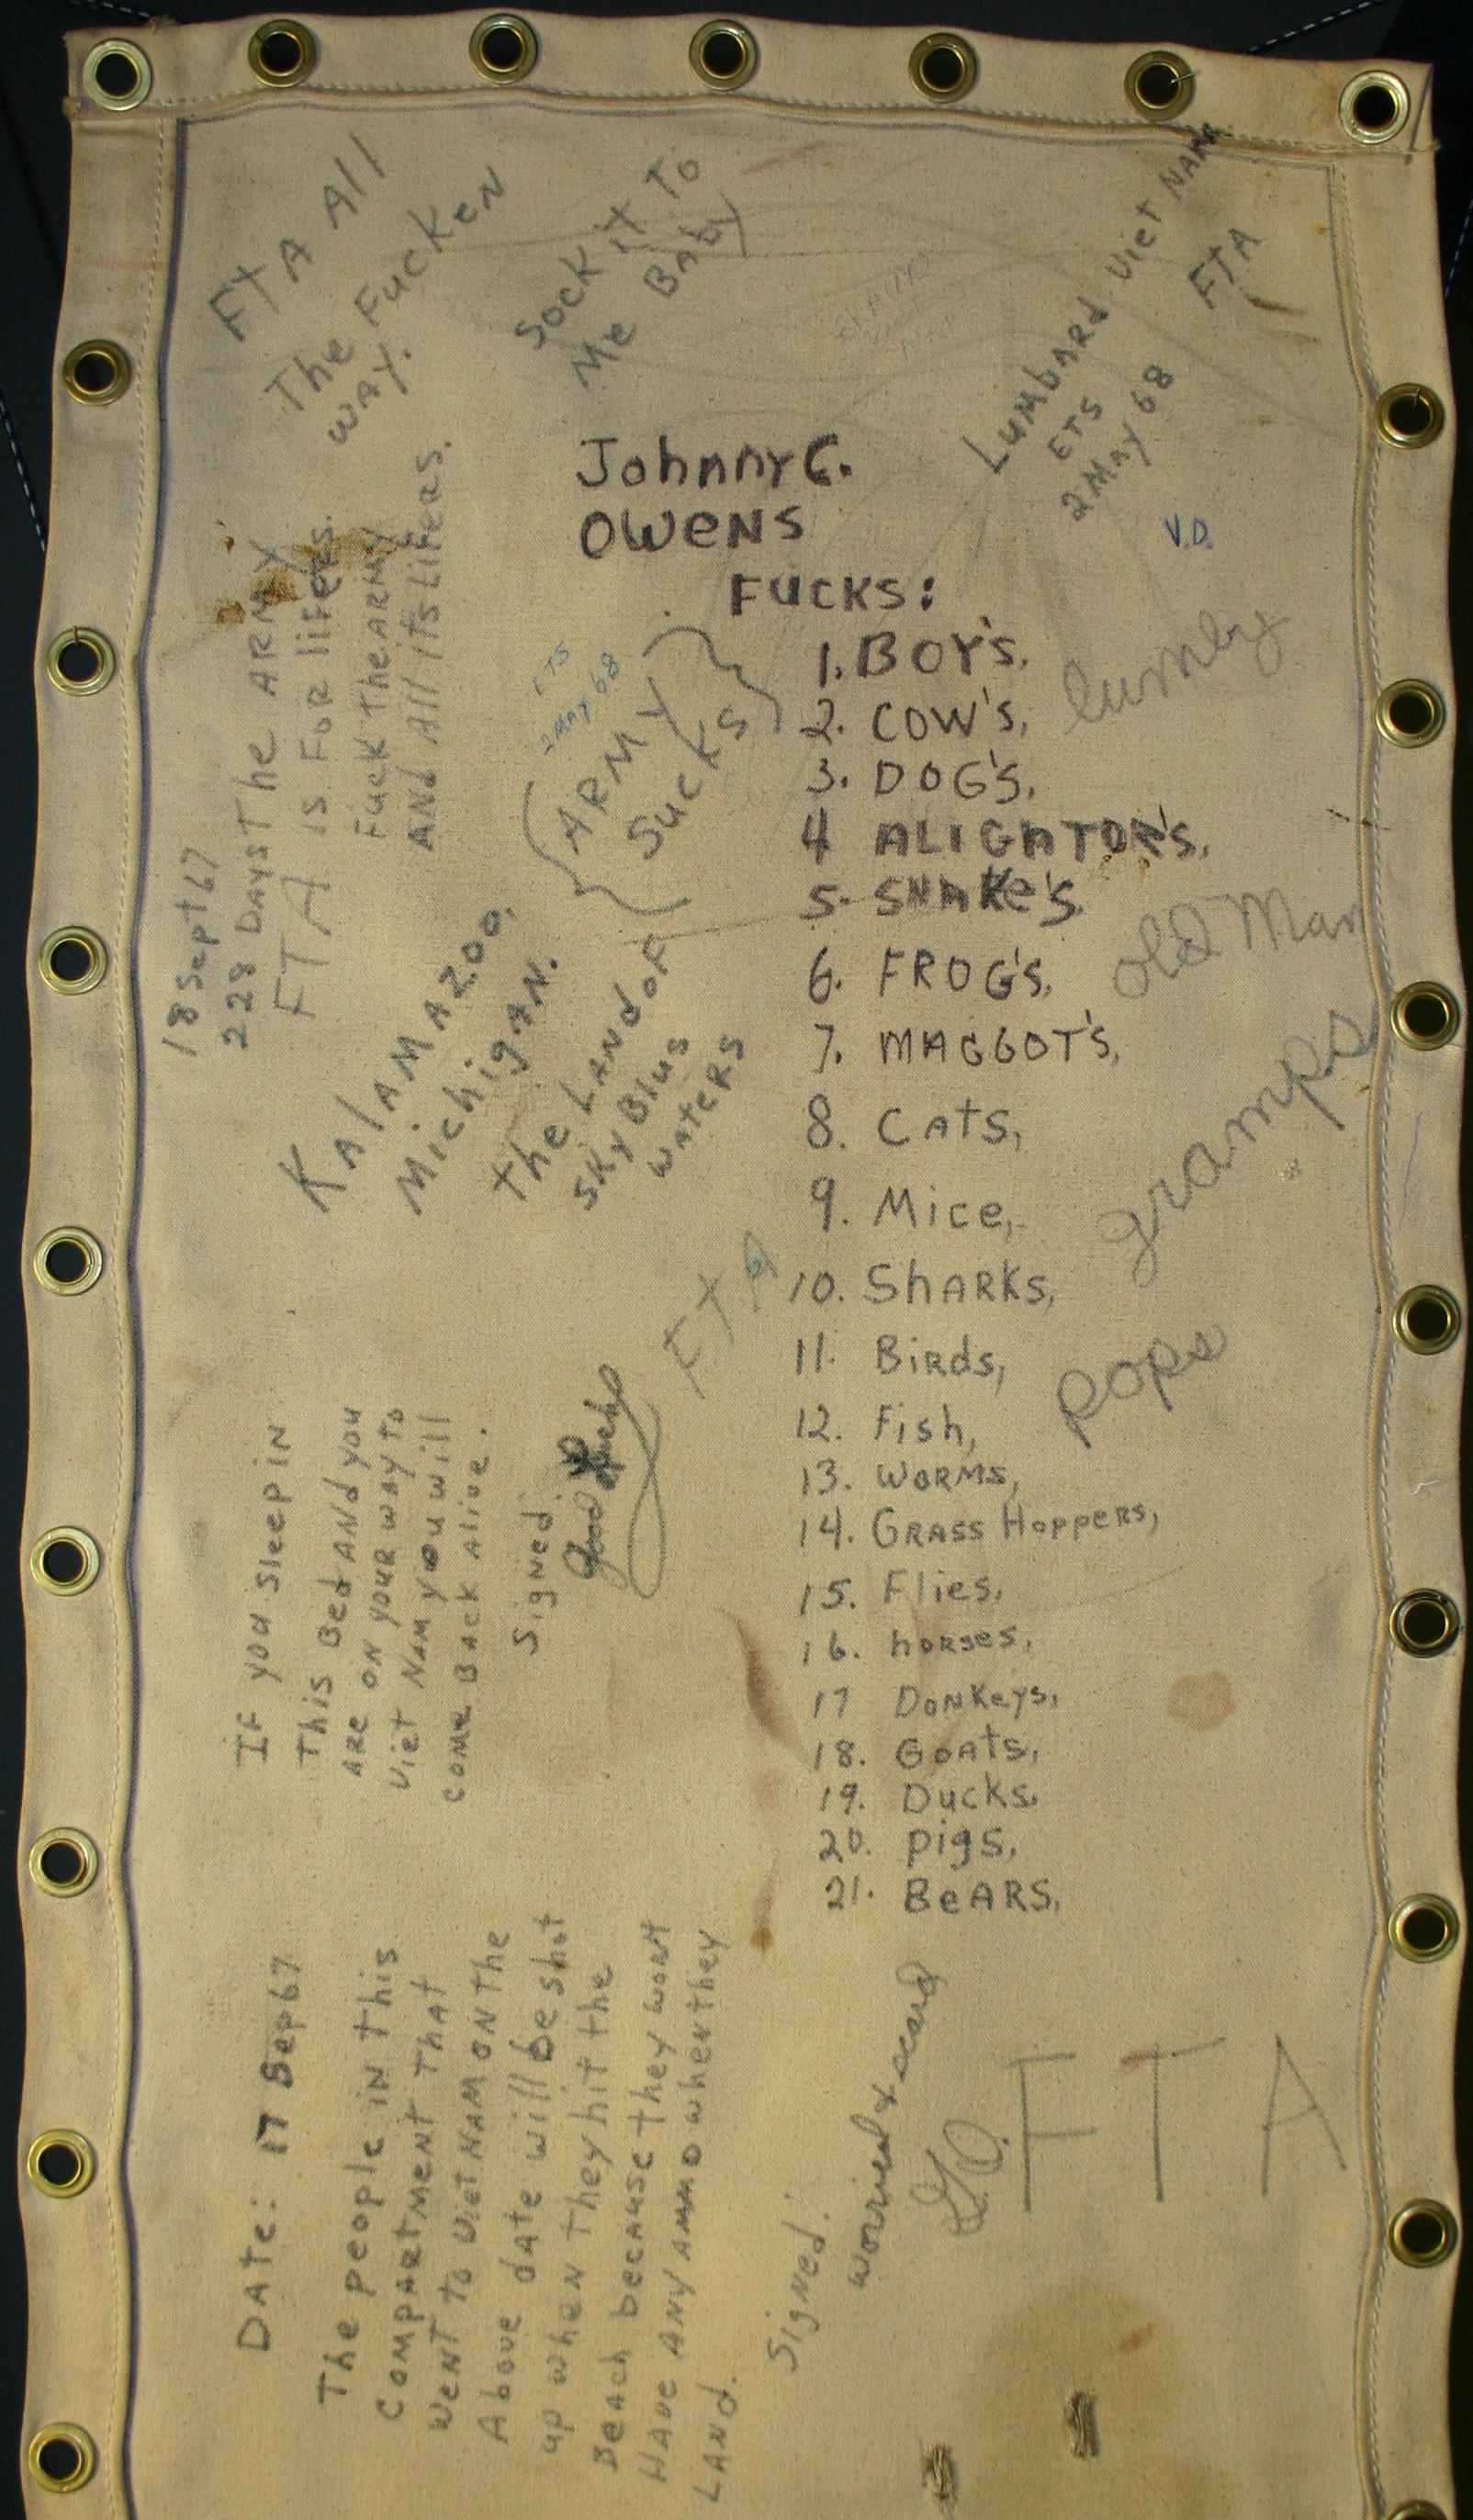 FTA All
The Fucken
way.
Sock it To
Me Baby
Lumbard Viet Nam
ETS
2 May 68
FTA
V.D.
Johnny C.
Owens
Fucks:
1. Boy's,
2. Cow's,
3. Dog's,
4 Alighator's,
5. Snake's,
6. Frog's,
7. Maggot's,
8. Cats,
9. Mice,
10. Sharks,
11. Birds,
12. Fish,
13. Worms,
14. Grass Hoppers,
15. Flies,
16. horses,
17 Donkeys,
18. Goats,
19. Ducks,
20. pigs,
21. Bears,
lumby
old Man
gramps
pops
18 Sept 67
228 Days
The Army
is For lifers.
Fuck The Army
And All its Lifers.
FTA
ETS
2 May 68
Army
Sucks
Kalamazoo,
Michigan.
the Land of
Sky Blue
waters
FTA
If you sleep in
This Bed And you
are on your way to
Viet Nam you will
come Back Alive.
Signed:
Good Luck
Date: 17 Sep 67
The people in this
compartment that
went to Viet Nam on the
Above date will be shot
up when they hit the
Beach because they wont
Have any ammo when they
Land.
Signed:
worried & scared
FTA